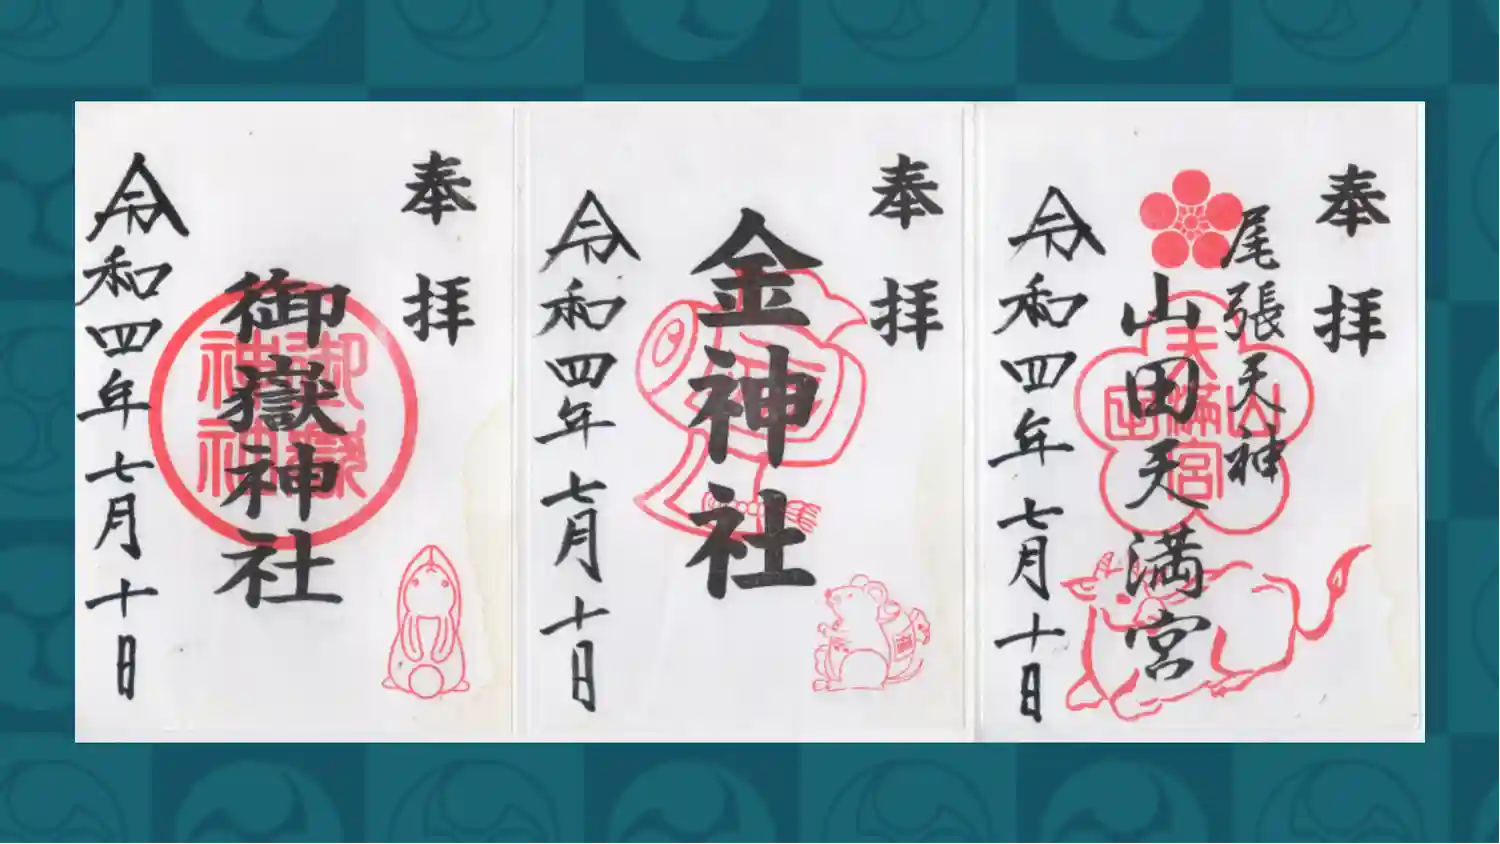 奉拝
尾張天神
山田天満宮
天満宮
山田
令和四年七月十日
奉拝
金神社
令和四年七月十日
奉拝
御嶽神社
御嶽
神社
令和四年七月十日